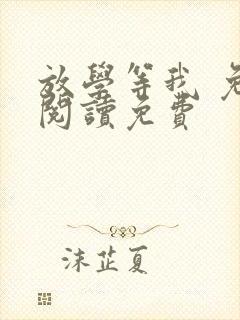 放學等我 免
閱讀免費
沫芷夏